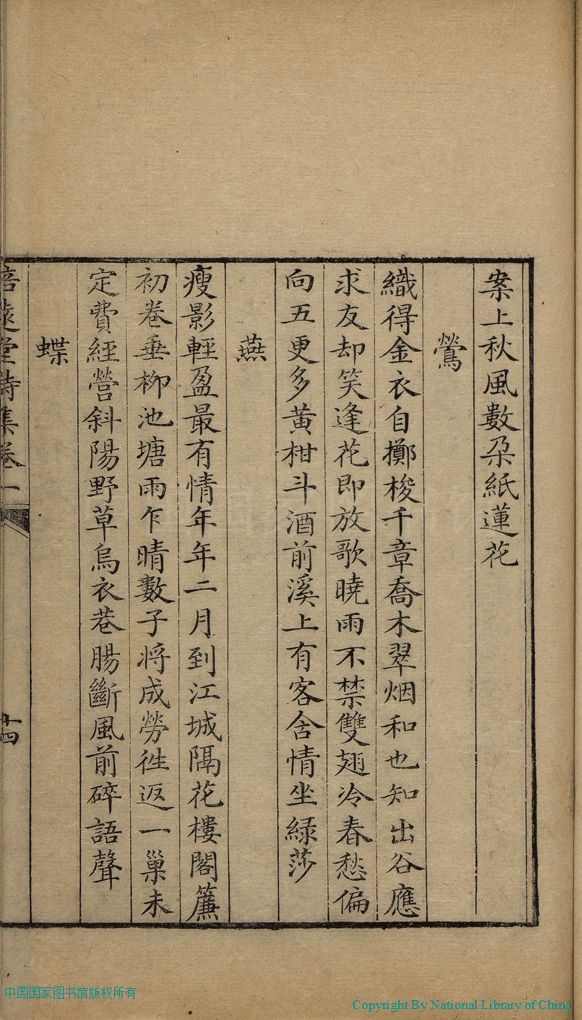 案上秋風數朶紙蓮花
鶯
織得金衣自擲梭千章喬木翠烟和也知出谷應
求友却笑逢花即放歌曉雨不禁雙翅冷春愁偏
向五更多黄柑斗酒前溪上有客舍情坐綠莎
燕
瘦影輕盈最有情年年二月到江城隔花樓閣簾
初卷垂柳池塘雨乍晴數子將成勞徃返一巢未
定費經營斜陽野草烏衣巷腸斷風前碎語聲
蝶
培遠堂詩集卷一
十四
中国国家图书馆版权所有
Copyright By National Library of China